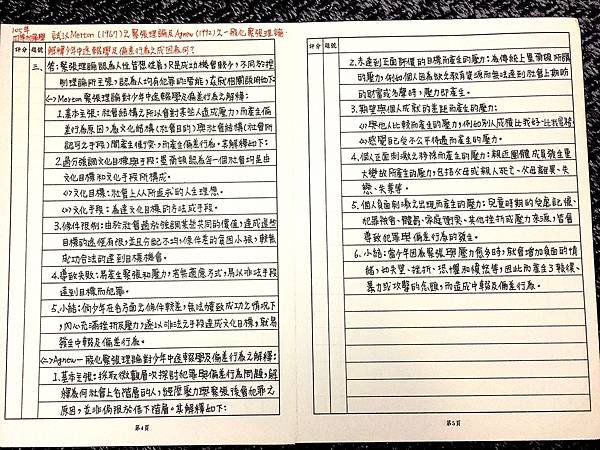 105年
試以Merton(1967)之緊張理論及Agnew(1992)之一般化緊張理論,
解釋少年中途輟學及偏差行為之成因為何?
評分 題號
三、答:緊張理論認為人性皆想從善,只是成功機會較少,不同於控
制理論所主張,認為人均有犯罪的潛能,茲就相關說明如下:
(一)Merton緊張理論對少年中途輟學及偏差行為之解釋:
1.基本主張:社會結構之所以會對某些人造成壓力,而產生偏
差行為原因,為文化結構(社會目的)與社會結構(社會所
認可之手段)間產生衝突,而產生偏差行為。其解釋如下:
2.過分強調文化目標與手段:墨爾頓認為每一個社會均是由
文化目標和文化手段所構成。
(1)文化目標:社會上人所追求的人生理想。
(2)文化手段:為達文化目標的方法或手段。
3.條件限制:由於社會過於強調某些共同的價值,達成這些
目標的途徑有限,並且分配不均,條件差的貧困小孩,較無
成功合法的達到目標機會。
4.導致失敗:易產生緊張和壓力,若無適應方式,易以非法手段
達到目標而犯罪。
5.小結:倘少年在各方面之條件較差,無法獲致成功之情況下,
內心充滿挫折及壓力,遂以非法之手段達成文化目標,就易
發生中輟及偏差行為。
(二)Agnew一般化緊張理論對少年中途輟學及偏差行為之解釋:
1.基本主張:採取微觀層次探討犯罪與偏差行為問題,解
釋為何社會上各階層的人,經歷壓力與緊張後會犯罪之
原因,並非侷限於低下階層。其解釋如下:
第4頁
評分 題號
2.未達到正面評價的目標而產生的壓力:為傳統上墨爾頓所謂
的壓力,例如個人因為缺乏教育資源而無法達到社會上期盼
的財富或名聲時,壓力即產生。
3.期望與個人成就的差距而產生的壓力:
(1)與他人比較而產生的壓力,例如別人成績比我好、比我富裕
(2)感覺自己受不公平待遇而產生的壓力。
4.個人正面刺激之移除而產生的壓力:親近團體成員發生重
大變故所產生的壓力,包括父母或親人死亡、父母離異、失
戀、失業等。
5.個人負面刺激之出現而產生的壓力:兒童時期的受虐記憶、
犯罪被害、體罰、家庭衝突、其他挫折或壓力來源,皆會
導致犯罪與偏差行為的發生。
6.小結:當少年因為緊張與壓力愈多時,就會增加負面的情
緒,如失望、挫折、恐懼和憤怒等,因此而產生了報復、
暴力或攻擊的念頭,而造成中輟及偏差行為。
第5頁